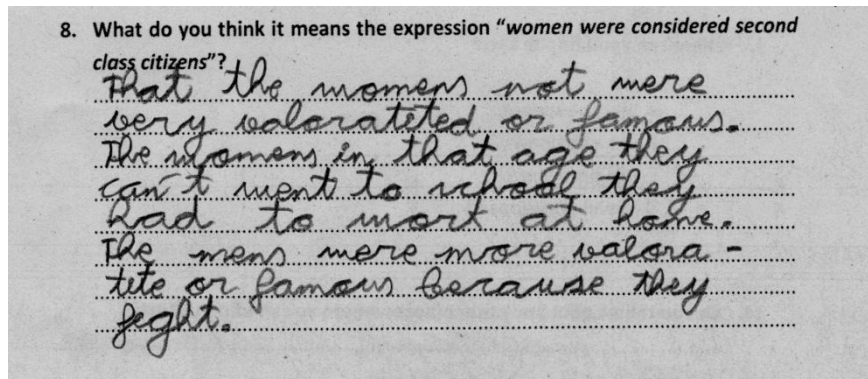 8. What do you think it means the expression "women were considered second
class citizens"?
That the womens not were
very valoratited or famous.
The womens in that age they
can't went to school they
had to work at home.
The mens were more valora-
tete or famous because they
fight.